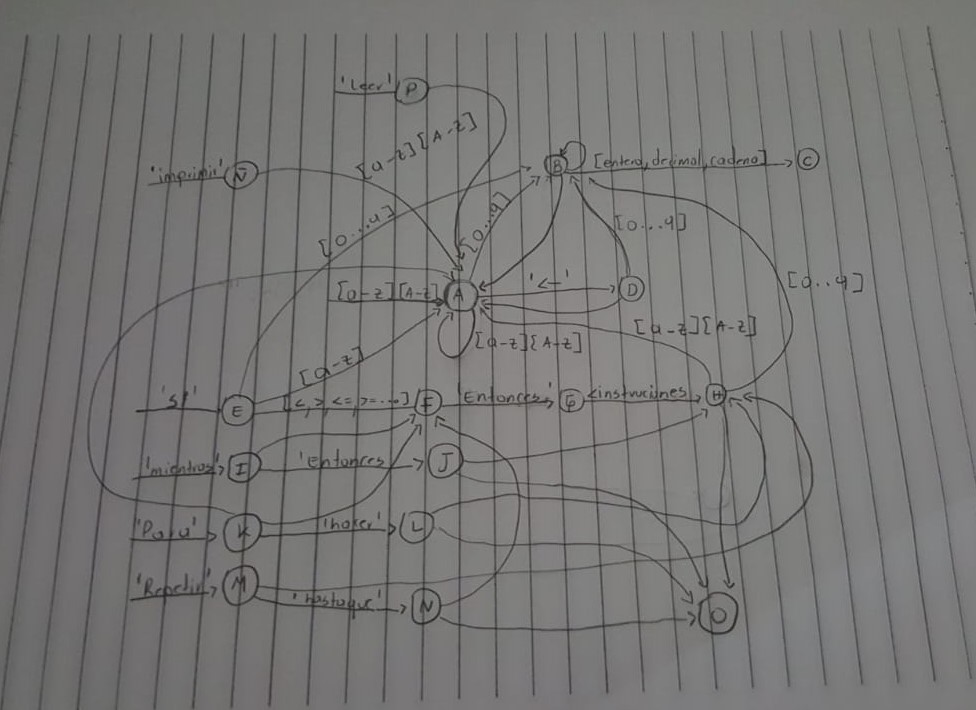 'Leer' P
[a-z][A-Z]
'imprimir' N
B [entero, decimal, cadena] C
[0...9]
[0...9]
[0...9]
[a-z][A-Z] A '<-' D
[0..9]
[a-z][A-Z]
[a-z][A-Z]
[a-z]
'si' E [<,>,<=,>=...] F 'Entonces' G <instruciones H
'mientras' I 'Entonces J
'Para' K 'hacer' L
'Repetir' M 'hastaque' N
O